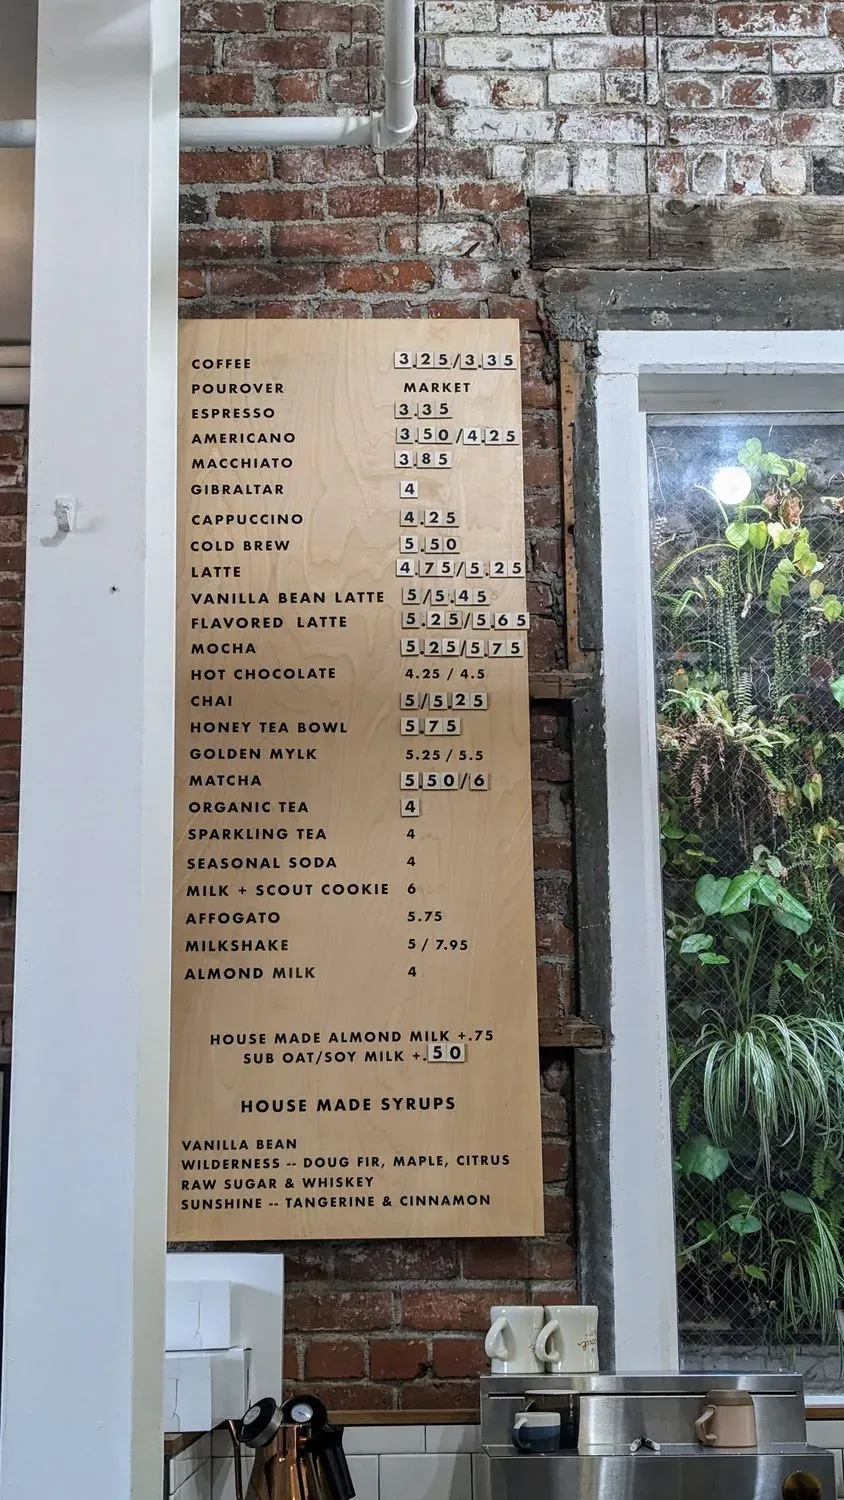 COFFEE 3.25/3.35
POUROVER MARKET
ESPRESSO 3.35
AMERICANO 3.50/4.25
MACCHIATO 3.85
GIBRALTAR 4
CAPPUCCINO 4.25
COLD BREW 5.50
LATTE 4.75/5.25
VANILLA BEAN LATTE 5/5.45
FLAVORED LATTE 5.25/5.65
MOCHA 5.25/5.75
HOT CHOCOLATE 4.25 / 4.5
CHAI 5/5.25
HONEY TEA BOWL 5.75
GOLDEN MYLK 5.25 / 5.5
MATCHA 5.50/6
ORGANIC TEA 4
SPARKLING TEA 4
SEASONAL SODA 4
MILK + SCOUT COOKIE 6
AFFOGATO 5.75
MILKSHAKE 5 / 7.95
ALMOND MILK 4
HOUSE MADE ALMOND MILK +.75
SUB OAT/SOY MILK +.50
HOUSE MADE SYRUPS
VANILLA BEAN
WILDERNESS -- DOUG FIR, MAPLE, CITRUS
RAW SUGAR & WHISKEY
SUNSHINE -- TANGERINE & CINNAMON